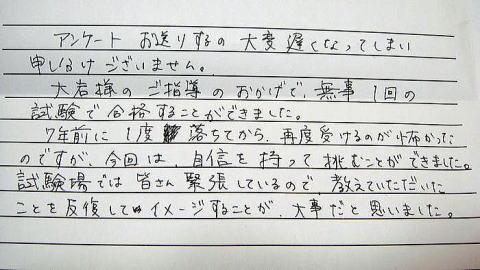 アンケート お送りするの 大変 遅くなってしまい
申し訳けございません。
大岩様の ご指導 の おかげで、無事 1回の
試験で 合格することができました。
7年前に 1度 落ちてから、再度受けるのが怖かった
のですが、今回は、自信を 持って 挑むことができました。
試験場では 皆さん 緊張しているので、教えていただいた
ことを反復して イメージすることが、大事だと思いました。